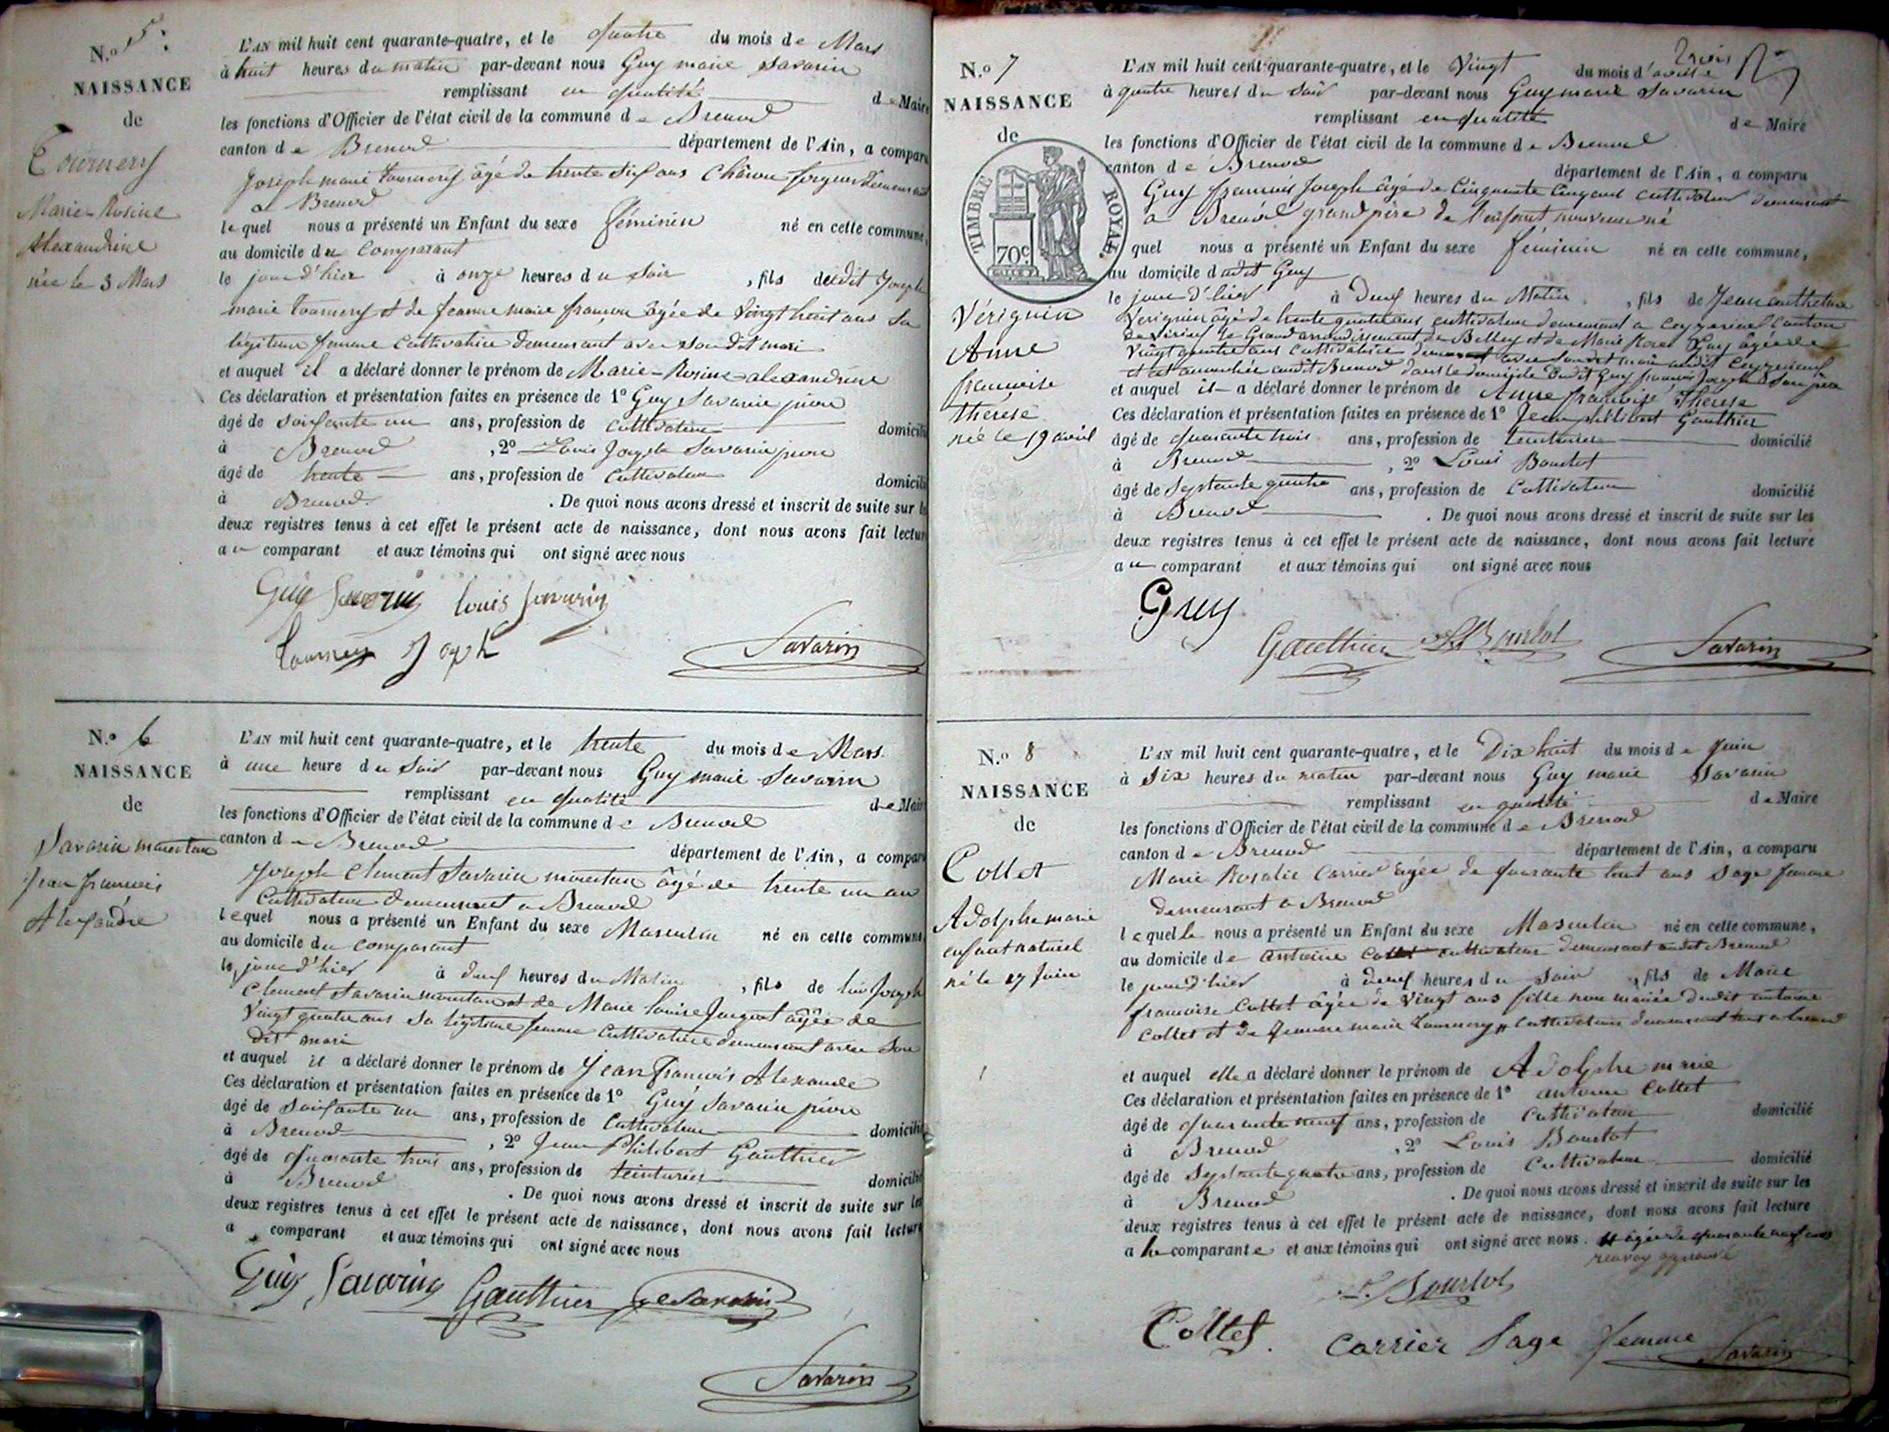 N.o 5
NAISSANCE
de
Tournery
Marie-Rosine
Alexandrine
née le 3 Mars
L'AN mil huit cent quarante-quatre, et le quatre du mois de Mars
à huit heures du matin par-devant nous Guy marie Savarin
remplissant en qualité de Maire
les fonctions d'Officier de l'état civil de la commune de Brenod
canton de Brenod département de l'Ain, a comparu
Joseph marie Tournery âgé de trente six ans demeurant
a Brenod
lequel nous a présenté un Enfant du sexe féminin né en cette commune,
au domicile du Comparant
le jour d'hier à onze heures du soir, fils dudit Joseph
marie Tournery et de Jeanne marie françon âgée de vingt huit ans sa
légitime femme cultivatrice demeurant avec son dit mari
et auquel il a déclaré donner le prénom de Marie-Rosine-alexandrine
Ces déclaration et présentation faites en présence de 1o Guy Savarin
âgé de soixante un ans, profession de cultivateur domicilié
à Brenod, 2o Louis Joseph Savarin
âgé de trente ans, profession de cultivateur domicilié
à Brenod. De quoi nous avons dressé et inscrit de suite sur les
deux registres tenus à cet effet le présent acte de naissance, dont nous avons fait lecture
au comparant et aux témoins qui ont signé avec nous
Guy Savarin Louis Savarin
Tournery Joseph Savarin
N.o 6
NAISSANCE
de
Savarin marestan
Jean françois
Alexandre
L'AN mil huit cent quarante-quatre, et le trente du mois de Mars
à une heure du soir par-devant nous Guy marie Savarin
remplissant en qualité de Maire
les fonctions d'Officier de l'état civil de la commune de Brenod
canton de Brenod département de l'Ain, a comparu
Joseph Clement Savarin marestan âgé de trente un an
Cultivateur demeurant a Brenod
lequel nous a présenté un Enfant du sexe Masculin né en cette commune,
au domicile du comparant
le jour d'hier à deux heures du Matin, fils de lui Joseph
Clement Savarin marestan et de Marie Louise âgée de
vingt quatre ans sa légitime femme cultivatrice demeurant avec son
dit mari
et auquel il a déclaré donner le prénom de Jean François Alexandre
Ces déclaration et présentation faites en présence de 1o Guy Savarin
âgé de soixante un ans, profession de Cultivateur domicilié
à Brenod, 2o Jean Philibert Gauthier
âgé de quarante trois ans, profession de teinturier domicilié
à Brenod. De quoi nous avons dressé et inscrit de suite sur les
deux registres tenus à cet effet le présent acte de naissance, dont nous avons fait lecture
a comparant et aux témoins qui ont signé avec nous
Guy Savarin Gauthier Savarin
Savarin
trois
N.o 7
NAISSANCE
de
TIMBRE ROYAL
70c
Vériguin
Anne
françoise
thérèse
née le 19 avril
L'AN mil huit cent quarante-quatre, et le vingt du mois d'avril
à quatre heures du soir par-devant nous Guy marie Savarin
remplissant en qualité de Maire
les fonctions d'Officier de l'état civil de la commune de Brenod
canton de Brenod département de l'Ain, a comparu
Guy françois Joseph âgé de Cinquante Cinq ans cultivateur demeurant
a Brenod grand père de l'enfant nouveau né
quel nous a présenté un Enfant du sexe féminin né en cette commune,
au domicile dudit Guy
le jour d'hier à deux heures du Matin, fils de Jean anthelme
Vériguin âgé de trente quatre ans cultivateur demeurant a Ceyzerieu Canton
de Virieu le Grand arrondissement de Belley et de Marie Guy âgée de
vingt quatre ans Cultivatrice demeurant avec son dit mari audit Ceyzerieu
et accouchée audit Brenod dans le domicile dudit Guy françois Joseph son père
et auquel il a déclaré donner le prénom de Anne françoise Thérèse
Ces déclaration et présentation faites en présence de 1o Jean philibert Gauthier
âgé de quarante trois ans, profession de teinturier domicilié
à Brenod, 2o Louis Bourlot
âgé de Septante quatre ans, profession de Cultivateur domicilié
à Brenod. De quoi nous avons dressé et inscrit de suite sur les
deux registres tenus à cet effet le présent acte de naissance, dont nous avons fait lecture
au comparant et aux témoins qui ont signé avec nous
Guy
Gauthier L Bourlot Savarin
N.o 8
NAISSANCE
de
Collet
Adolphe marie
enfant naturel
né le 17 Juin
L'AN mil huit cent quarante-quatre, et le Dix huit du mois de Juin
à six heures du matin par-devant nous Guy marie Savarin
remplissant en qualité de Maire
les fonctions d'Officier de l'état civil de la commune de Brenod
canton de Brenod département de l'Ain, a comparu
Marie Rosalie Carrier âgée de quarante huit ans Sage femme
demeurant a Brenod
lequelle nous a présenté un Enfant du sexe Masculin né en cette commune,
au domicile de antoine Collet cultivateur demeurant audit Brenod
le jour d'hier à deux heures du soir, fils de Marie
françoise Collet âgée de vingt ans fille non mariée dudit antoine
Collet et de Jeanne marie Tournery # Cultivateurs demeurant tous a Brenod
et auquel elle a déclaré donner le prénom de Adolphe marie
Ces déclaration et présentation faites en présence de 1o antoine Collet
âgé de quarante neuf ans, profession de Cultivateur domicilié
à Brenod, 2o Louis Bourlot
âgé de Septante quatre ans, profession de Cultivateur domicilié
à Brenod. De quoi nous avons dressé et inscrit de suite sur les
deux registres tenus à cet effet le présent acte de naissance, dont nous avons fait lecture
a la comparante et aux témoins qui ont signé avec nous. # âgée de quarante neuf ans
renvoy approuvé
L. Bourlot
Collet. Carrier Sage femme Savarin